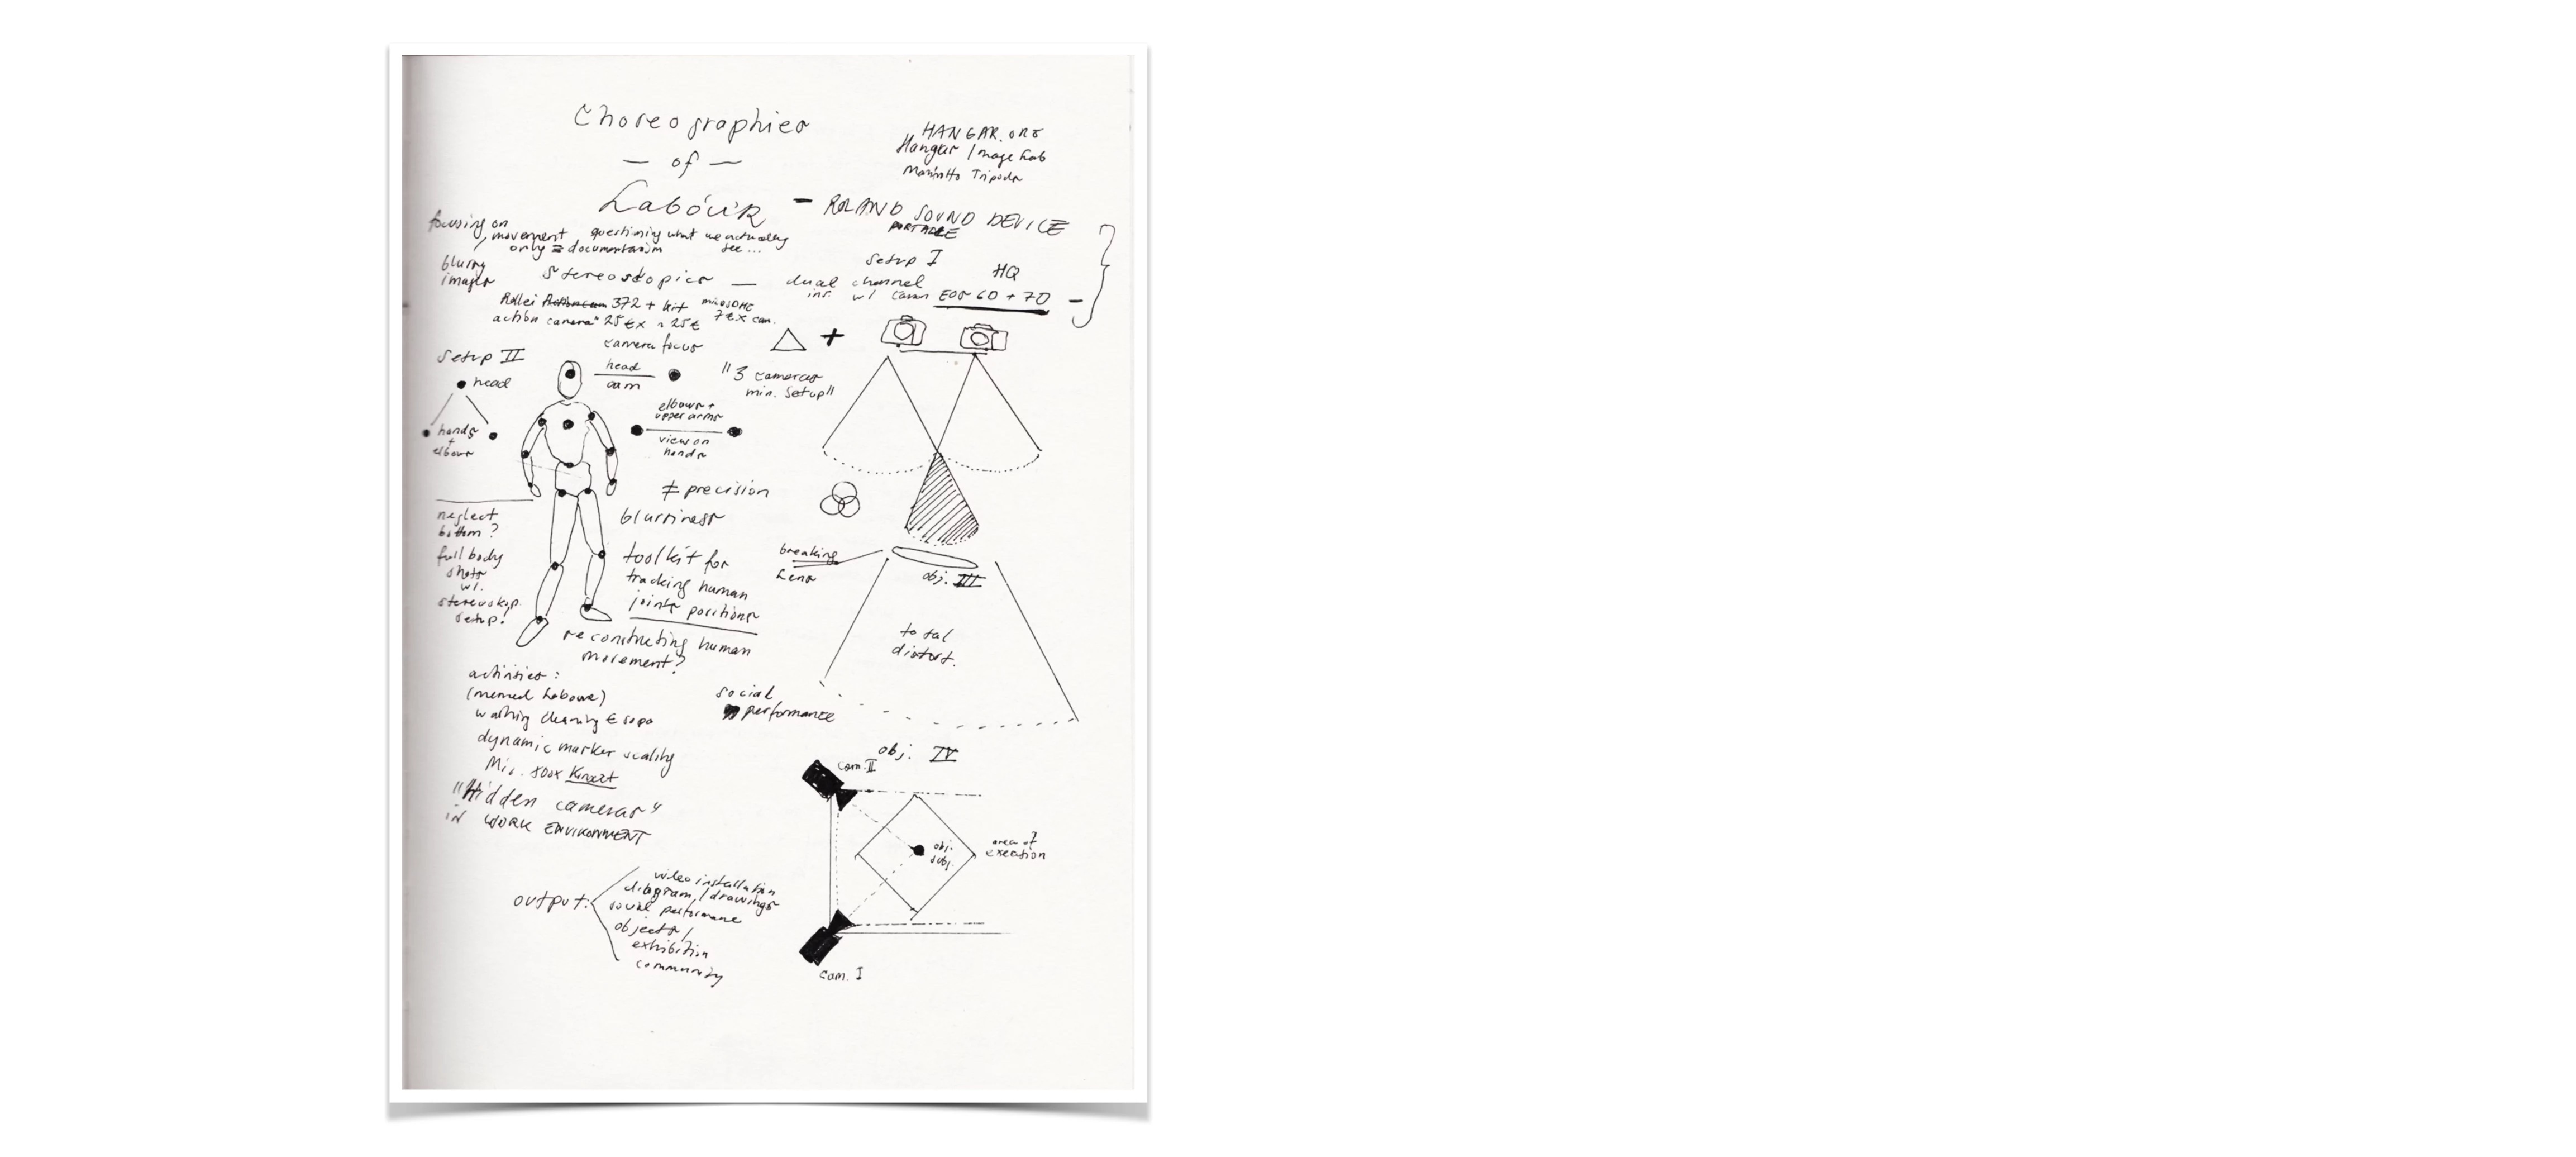 Choreographies
— of —
Labour
HANGAR.ORG
Hangar Image Lab
Tripods
– ROLAND SOUND DEVICE
PORTABLE
focusing on
movement
only = documentarism
questioning what we actually
see...
blurry
images
stereoskopics —
Setup I
dual channel
w/ Canon EOS 60 + 70 –
HQ
Rollei Actioncam 372 + kit
action camera" 25€x
7€x cam.
camera focus
Setup II
head
hands
+
elbows
head
cam
"3 cameras
min. Setup"
elbows +
upper arms
view on
hands
≠ precision
blurriness
neglect
bottom?
full body
shots
w/.
stereoskop.
setup!
toolkit for
tracking human
joints positions
reconstructing human
movement?
breaking
Lens
obj. III
total
distort.
activities:
washing cleaning
dynamic marker
Kinect
"Hidden cameras"
in WORK ENVIRONMENT
social
performance
obj. IV
cam. II
obj.
subj.
area of
cam. I
output:
video installation
diagram / drawings
social performance
objects /
exhibition
community